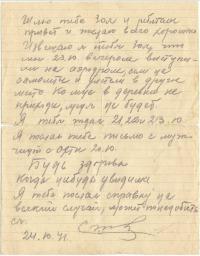 Шлю тебе Зоя и ребятам
привет и желаю всего хорошего
Извещаю я тебя Зоя, что
мы 23.10 вечером выступи
ли на аэродром, сели на
самолёты и улетели в другое
место Ко мне в деревню не
приходи, меня не будет.
Я тебя ждал 21, 22 и 23.10.
Я послал тебе письмо с муж
чиной с 20.10.
Будь здорова
Когда нибудь увидимся
Я тебе послал справку на
всякий случай, может понадобить
ся.
24.10.41.